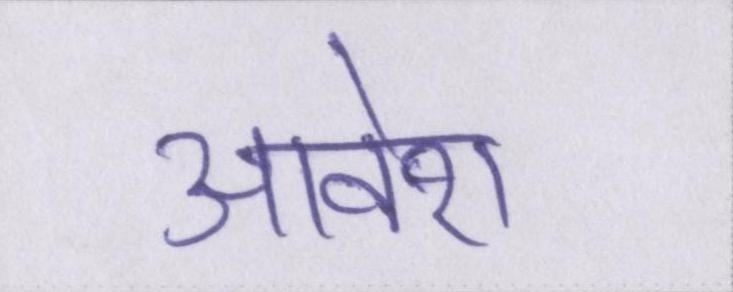 आवेश